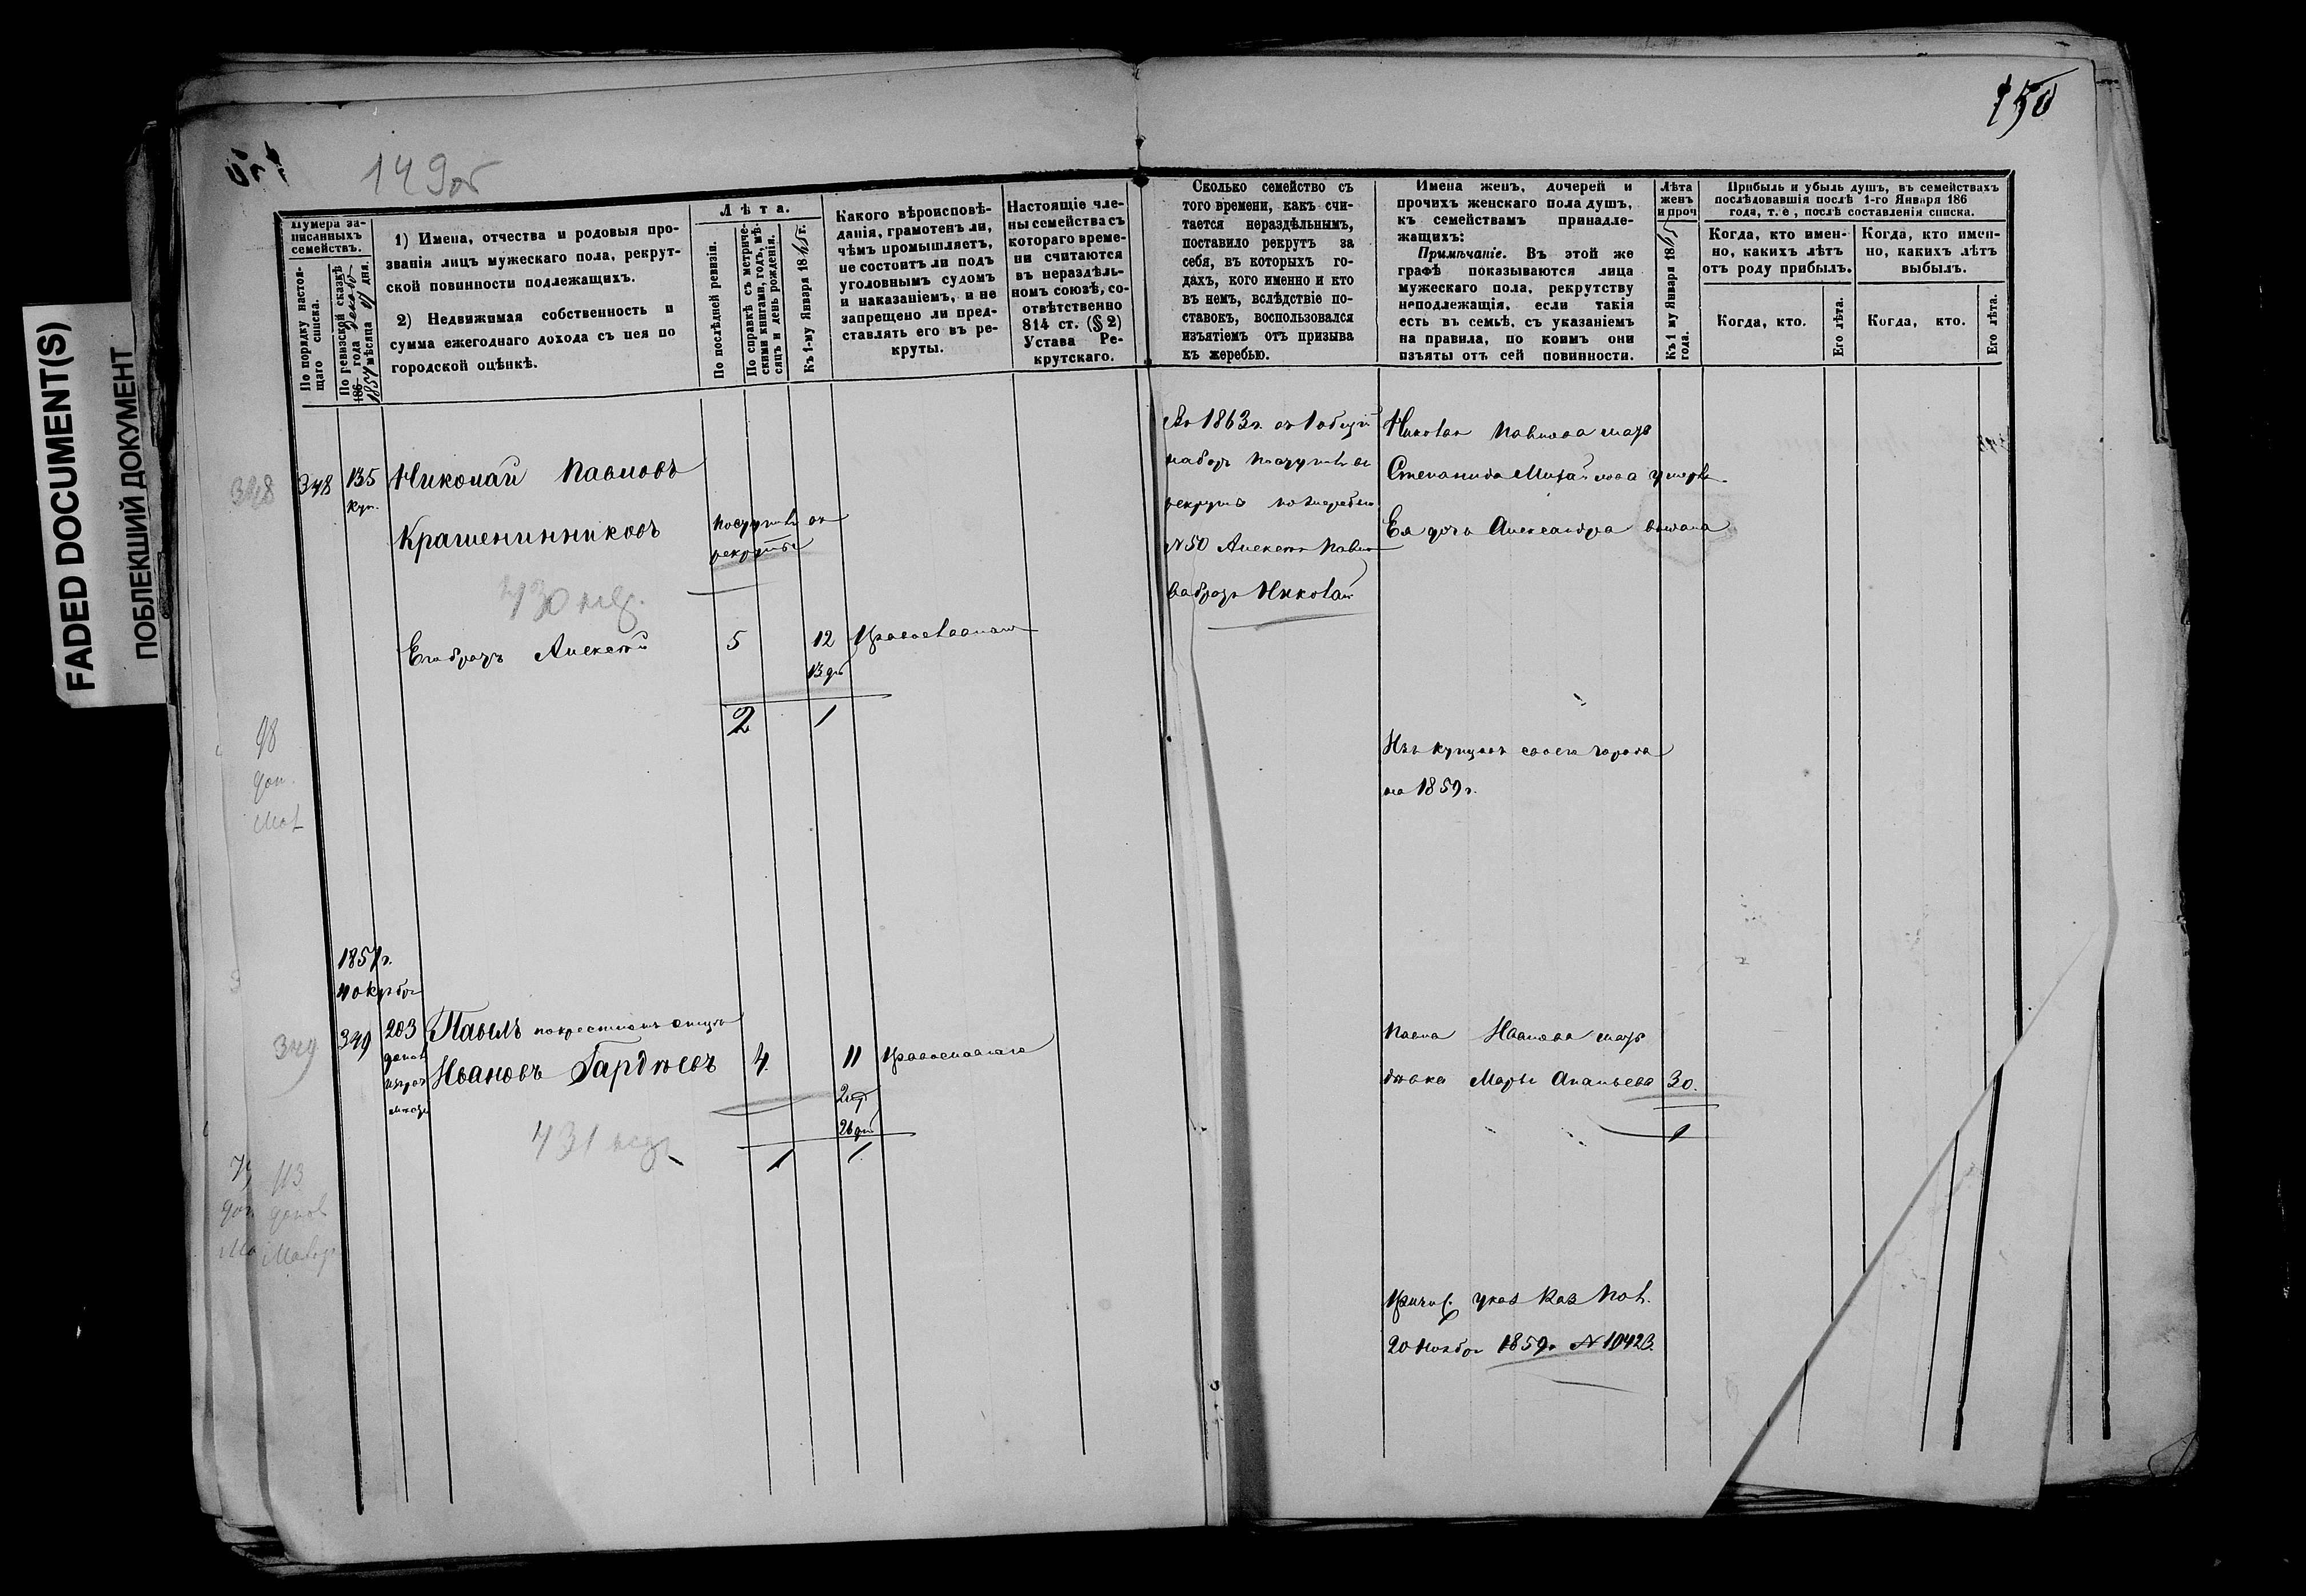 FADED DOCUMENT(S)
ПОБЛЕКШИЙ ДОКУМЕНТ
149об
150
Нумера за-
писанныхъ
семействъ.
По порядку настоя-
щаго списка.
По ревизской сказкѣ
186 года
1857 мѣсяца дня.
1) Имена, отчества и родовыя про-
званія лицъ мужескаго пола, рекрут-
ской повинности подлежащихъ.
2) Недвижимая собственность и
сумма ежегоднаго дохода съ нея по
городской оцѣнкѣ.
Лѣта.
По послѣдней ревизіи.
По справкѣ съ метриче-
скими книгами, годъ, мѣ-
сяцъ и день рожденія.
Къ 1-му Января 18 г.
Какого вѣроисповѣ-
данія, грамотенъ ли,
чѣмъ промышляетъ,
не состоитъ ли подъ
уголовнымъ судомъ
и наказаніемъ, и не
запрещено ли пред-
ставлять его въ ре-
круты.
Настоящіе чле-
ны семейства съ
котораго време-
ни считаются
въ нераздѣль-
номъ союзѣ, со-
отвѣтственно
814 ст. (§ 2)
Устава Ре-
крутскаго.
Сколько семейство съ
того времени, какъ счи-
тается нераздѣльнымъ,
поставило рекрутъ за
себя, въ которыхъ го-
дахъ, кого именно и кто
въ немъ, вслѣдствіе по-
ставокъ, воспользовался
изъятіемъ отъ призыва
къ жеребью.
Имена женъ, дочерей и
прочихъ женскаго пола душъ,
къ семействамъ принадле-
жащихъ:
Примѣчаніе. Въ этой же
графѣ показываются лица
мужескаго пола, рекрутству
неподлежащія, если такія
есть въ семьѣ, съ указаніемъ
на правила, по коимъ они
изъяты отъ сей повинности.
Лѣта
женъ
и проч
Къ 1 му Января 18
года.
Прибыль и убыль душъ, въ семействахъ
послѣдовавшія послѣ 1-го Января 186
года, т. е, послѣ составленія списка.
Когда, кто имен-
но, какихъ лѣтъ
отъ роду прибылъ.
Когда, кто имен-
но, какихъ лѣтъ
выбылъ.
Когда, кто.
Его лѣта.
Когда, кто.
Его лѣта.
348
348
135
куп.
Николай Павловъ
Крашенинниковъ
поступилъ въ
рекруты
430
Его братъ Алексѣй
5
12
13 дн
Православнаго
2
1
Въ 1863 г. въ 1 общій
наборъ поступилъ въ
рекруты по жеребью
№ 50 Алексѣя Павло
ва братъ Николай
Николая Павлова мать
Степанида Михайлова умерла
Ея дочь Александра выдана
Изъ купцовъ своего города
на 1859 г.
98
доп.
1857 г.
349
349
203
Павелъ по крестному отцу
Ивановъ Гардѣевъ
4
11
Православнаго
26 дн
1
1
431
Павла Иванова мать
дѣвка Марья Ананьева
30.
1
113
Причис. указ Каз Пал.
20 Ноября 1859 г № 10423